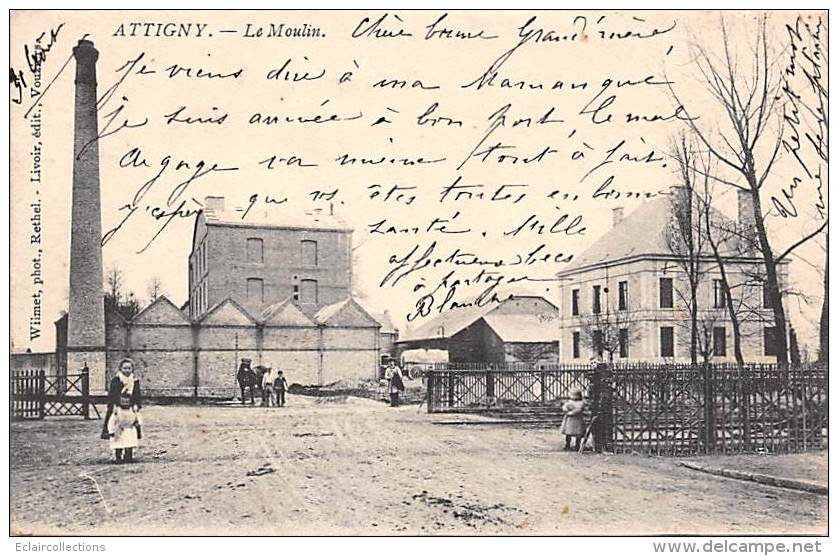 ATTIGNY. — Le Moulin.
Chère bonne Grand'mère
Je viens dire à ma Maman que
je suis arrivée à bon port le mal
de gorge va mieux tout à fait
j'espère que vs êtes toutes en bonne
santé. Mille
affectueux becs
à partager
Blanche
un petit mot
me ferait plaisir
Wilmet, phot., Rethel. - Livoir, édit., Vouziers
Eclaircollections
www.delcampe.net